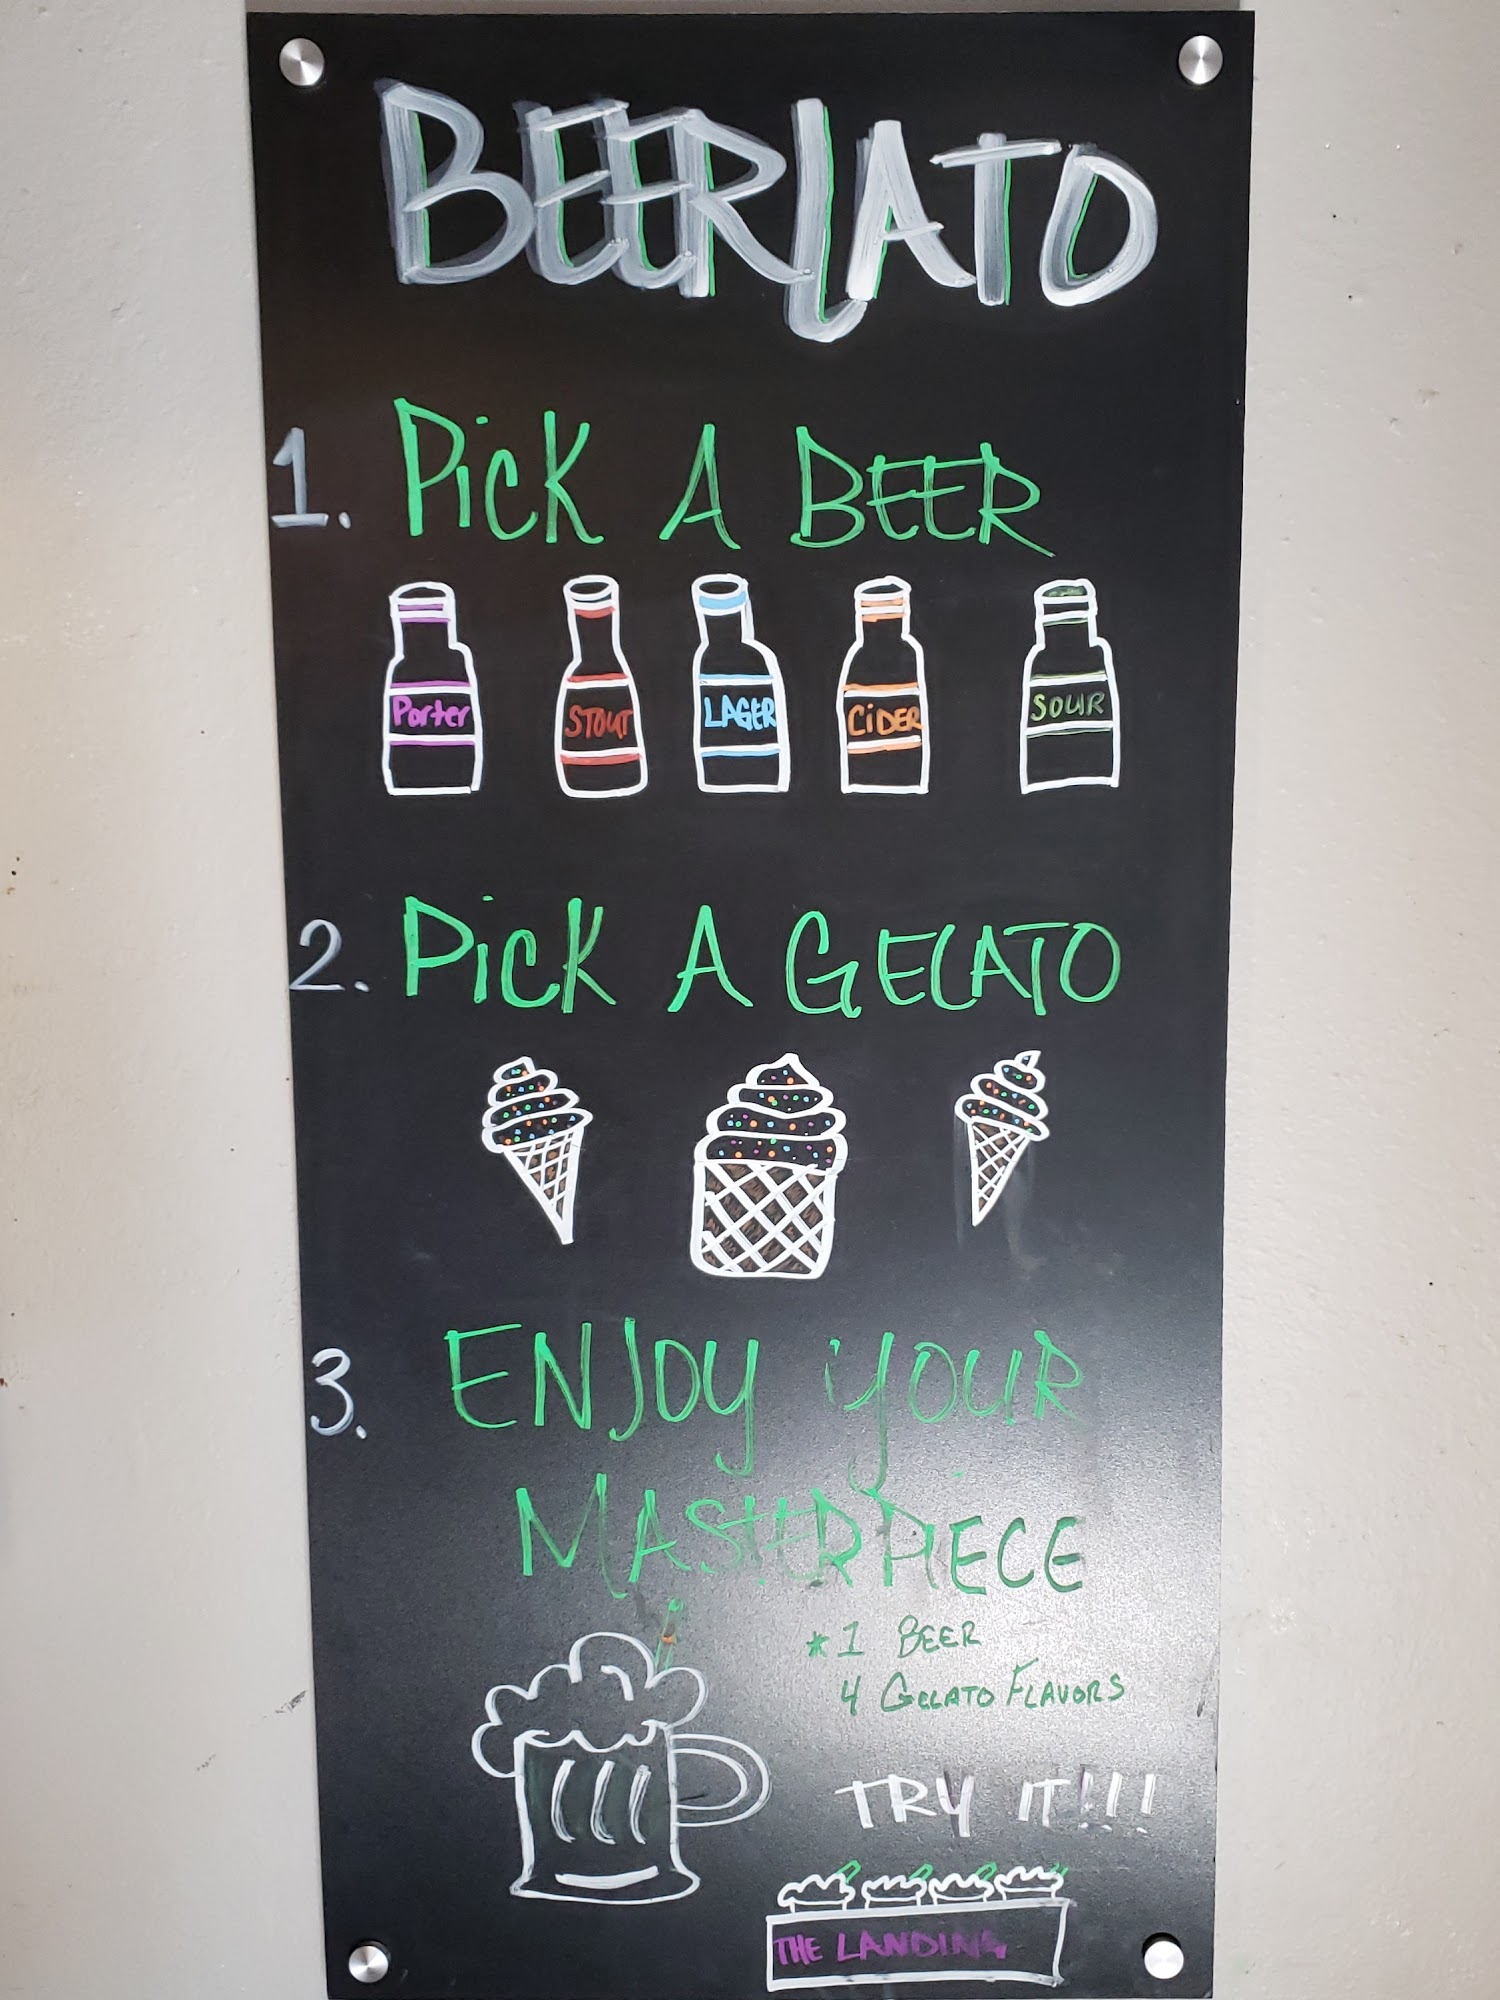 BEERLATO
1. Pick A BEER
Porter STOUT LAGER CiDER SOUR
2. Pick A GELATO
3. ENJOY YOUR
MASTERPIECE
*1 BEER
4 GELATO FLAVORS
TRY IT!!!
THE LANDING